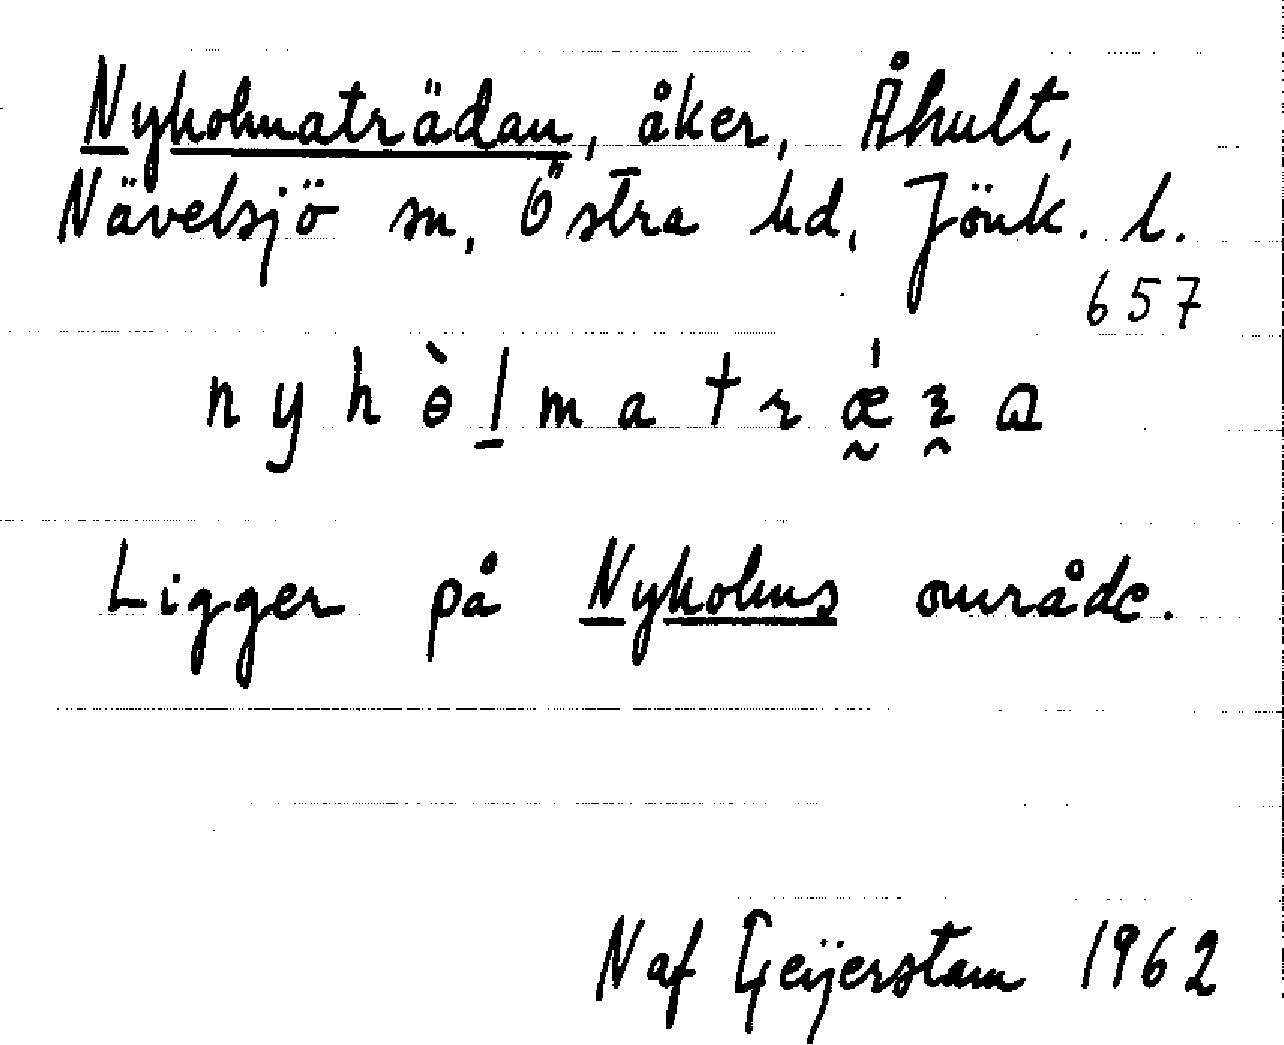 Nyholmaträdan, åker, Åhult,
Nävelsjö sn, Östra hd, Jönk. l.
657
n y h ɵ̀ l̠ m a t r ǽ̰ ꭋ̯ ɑ
Ligger på Nyholms område.
N af Geijerstam 1962